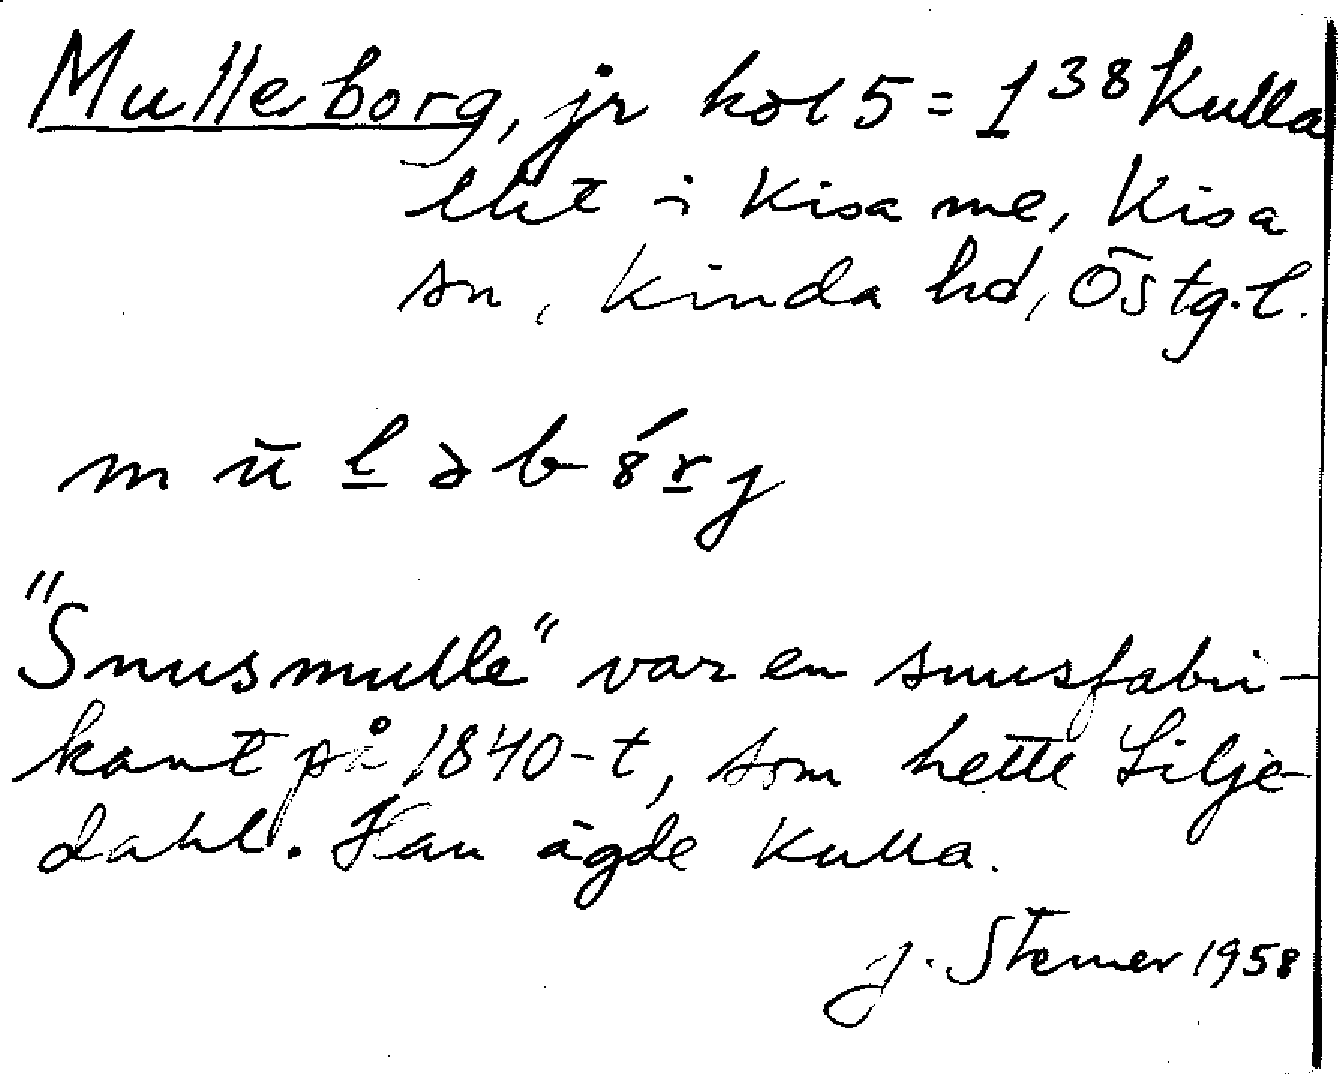 Mulleborg, jr kol 5 = 1³⁸ Kulla
lht i Kisa me, Kisa
sn, Kinda hd, Östg.l.
m ū l ə b ó r g
"Snusmulle" var en snusfabri-
kant på 1840-t, som hette Lilje-
dahl. Han ägde Kulla.
J. Sterner 1958